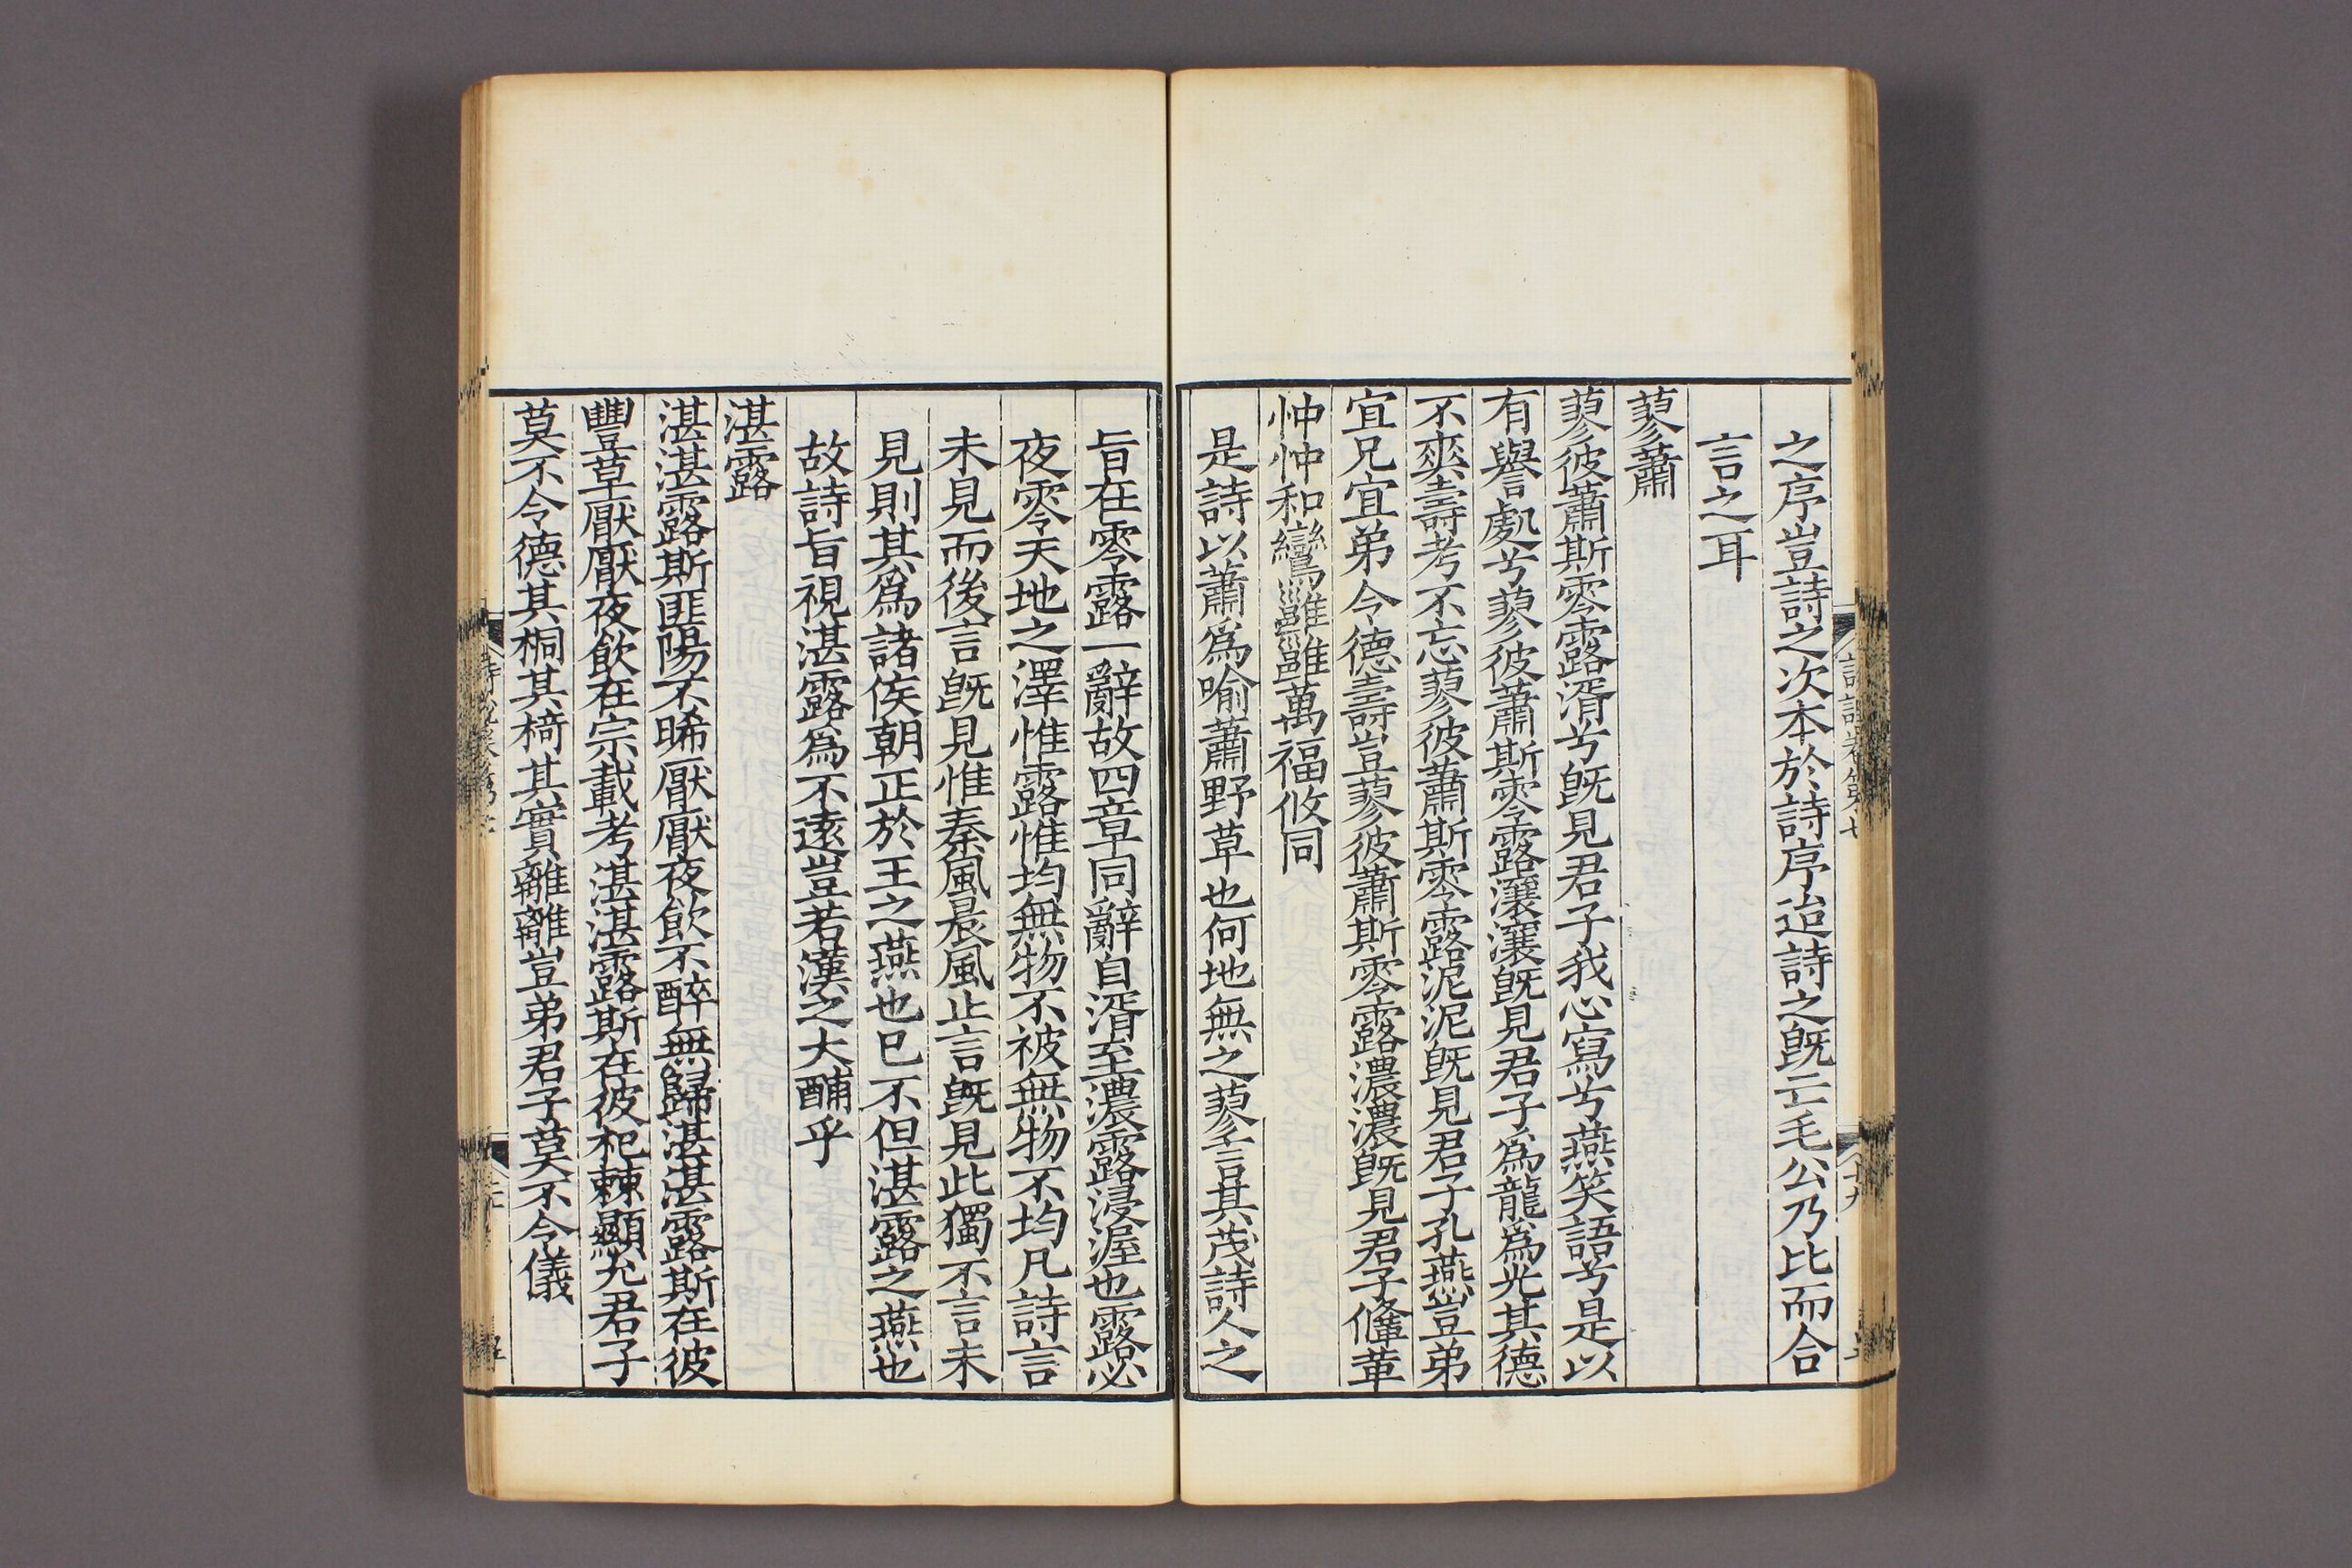 之序豈詩之次本於詩序迨詩之旣亡毛公乃比而合
言之耳
蓼蕭
蓼彼蕭斯零露湑兮旣見君子我心寫兮燕笑語兮是以
有譽處兮蓼彼蕭斯零露瀼瀼旣見君子爲龍爲光其德
不爽壽考不忘蓼彼蕭斯零露泥泥旣見君子孔燕豈弟
宜兄宜弟令德壽豈蓼彼蕭斯零露濃濃旣見君子鞗革
忡忡和鸞雝雝萬福攸同
是詩以蕭爲喻蕭野草也何地無之蓼言其茂詩人之
旨在零露一辭故四章同辭自湑至濃露浸渥也露必
夜零天地之澤惟露惟均無物不被無物不均凡詩言
未見而後言旣見惟秦風晨風止言旣見此獨不言未
見則其爲諸侯朝正於王之燕也巳不但湛露之燕也
故詩旨視湛露爲不遠豈若漢之大酺乎
湛露
湛湛露斯匪陽不晞厭厭夜飮不醉無歸湛湛露斯在彼
豐草厭厭夜飮在宗載考湛湛露斯在彼杞棘顯允君子
莫不令德其桐其椅其實離離豈弟君子莫不令儀